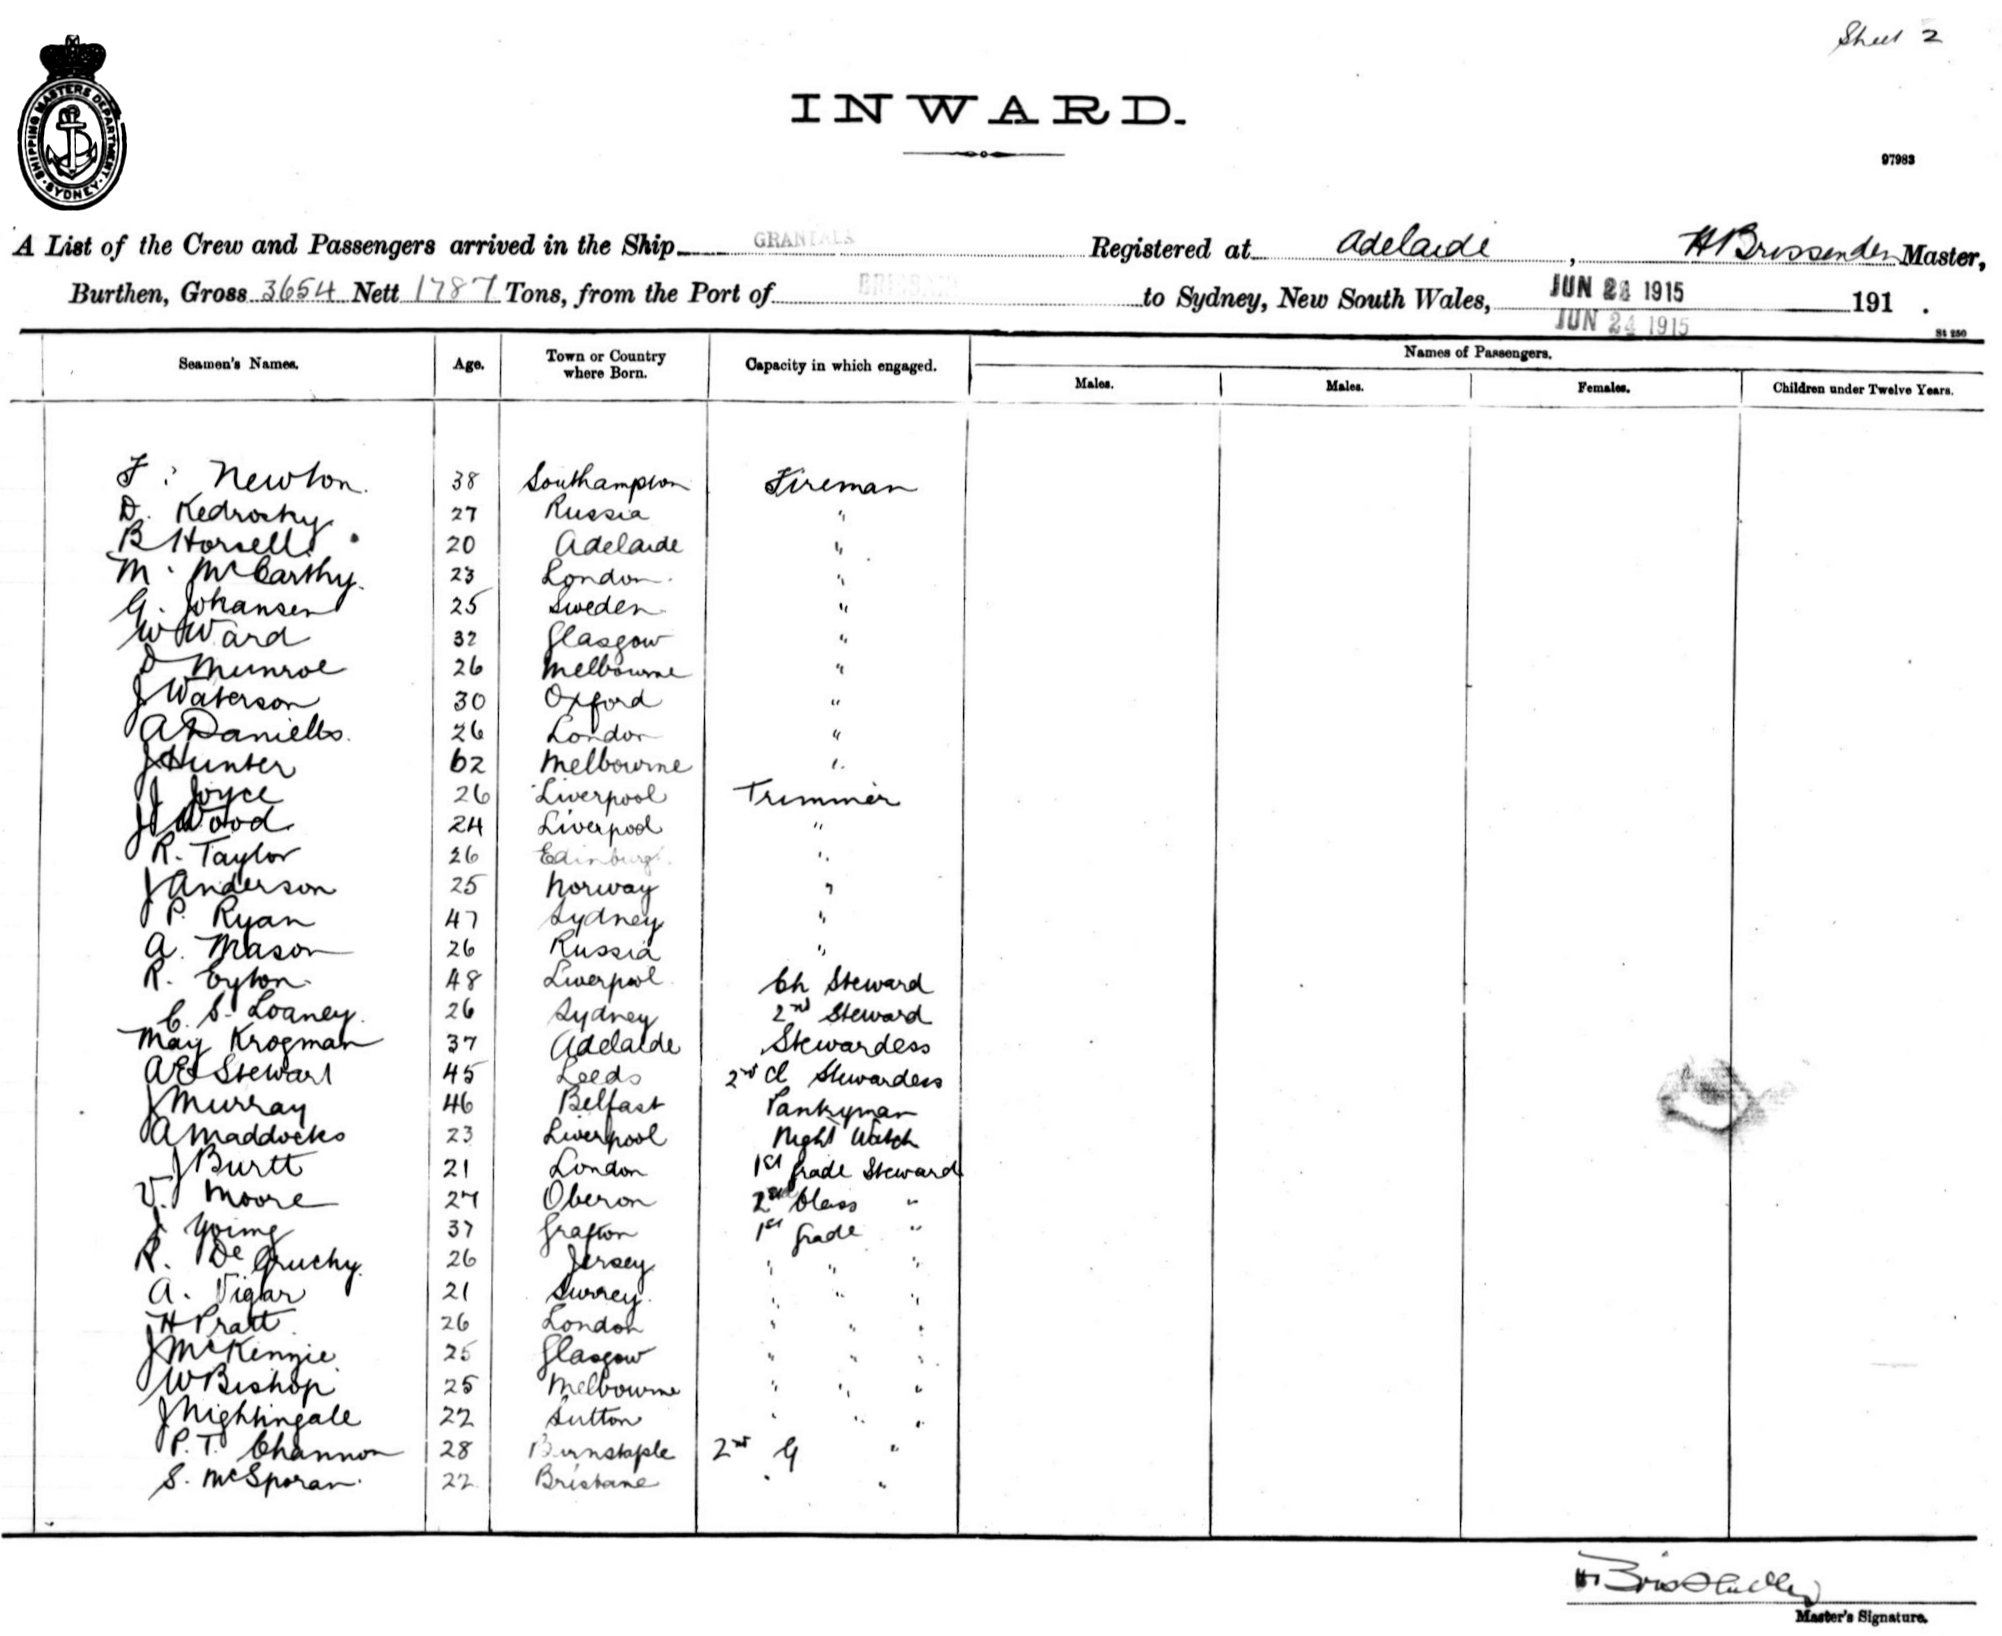 Sheet 2
SHIPPING MASTERS DEPARTMENT · SYDNEY ·
INWARD.
97983
A List of the Crew and Passengers arrived in the Ship GRANTALA Registered at Adelaide, H Brissenden Master,
Burthen, Gross 3654 Nett 1787 Tons, from the Port of BRISBANE to Sydney, New South Wales, JUN 1915 191 .
JUN 24 1915
St 250
Seamen's Names. Age. Town or Country where Born. Capacity in which engaged. Names of Passengers.
Males. Males. Females. Children under Twelve Years.
F. Newton. 38 Southampton Fireman
D. Kedrosky 27 Russia "
B Horsell 20 Adelaide "
M. McCarthy. 23 London. "
G. Johansen 25 Sweden "
W Ward 32 Glasgow "
D Munroe 26 Melbourne "
J Waterson 30 Oxford "
A Daniells. 26 London "
J Hunter 62 Melbourne "
J Joyce 26 Liverpool Trimmer
J Wood 24 Liverpool "
R. Taylor 26 Edinburg. "
J Anderson 25 Norway "
P. Ryan 47 Sydney "
A. Mason 26 Russia "
R. Eyton. 48 Liverpool Ch Steward
C. S. Loaney. 26 Sydney 2nd Steward
May Krogman 37 Adelaide Stewardess
A E Stewart 45 Leeds 2nd Cl Stewardess
J Murray 46 Belfast Pantryman
A Maddocks 23 Liverpool Night Watch
J Burtt 21 London 1st Grade Steward
V. Moore 27 Oberon 2nd Class "
J Young 37 Grafton 1st Grade "
R. De Gruchy. 26 Jersey " " "
A. Vigar 21 Surrey. " " "
H Pratt 26 London " " "
J McKenzie 25 Glasgow " " "
W Bishop 25 Melbourne " " "
J Nightingale 22 Sutton " " "
P. T. Channon 28 Barnstaple 2nd G "
S. McSporan. 22 Brisbane " "
Master's Signature.